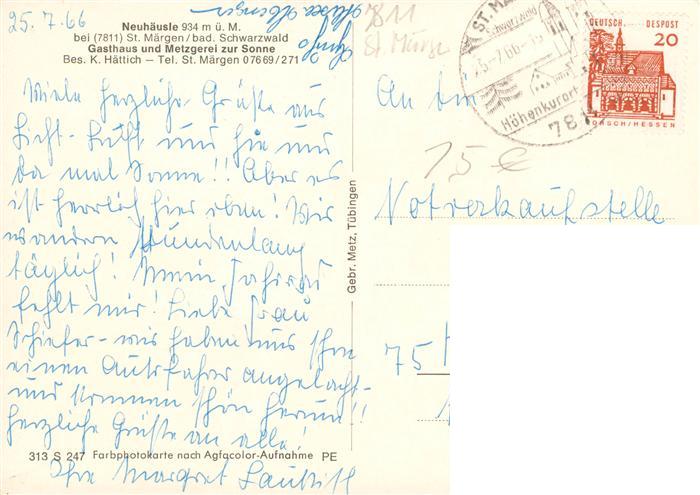 25.7.66
Neuhäusle 934 m ü. M.
bei (7811) St. Märgen/bad. Schwarzwald
Gasthaus und Metzgerei zur Sonne
Bes. K. Hättich – Tel. St. Märgen 07669/271
Viele herzliche Grüße aus
Licht-Luft und hie und
da mal Sonne!! Aber es
ist herrlich hier oben! Wir
wandern stundenlang
täglich! Mein
fehlt mir! Liebe Frau
Schiefer - wir haben uns schon
einen Autofahrer angelacht-
und kommen schön herum!!
herzliche Grüße an alle!
Ihre Margret
313 S 247 Farbphotokarte nach Agfacolor-Aufnahme PE
Gebr. Metz, Tübingen
7811
St. Märge
ST. MÄ
Schwarzwald
5-7.66-15
Höhenkurort
781
DEUTSCHE BUNDESPOST
20
LORSCH/HESSEN
An die
15 €
Notverkaufstelle
75